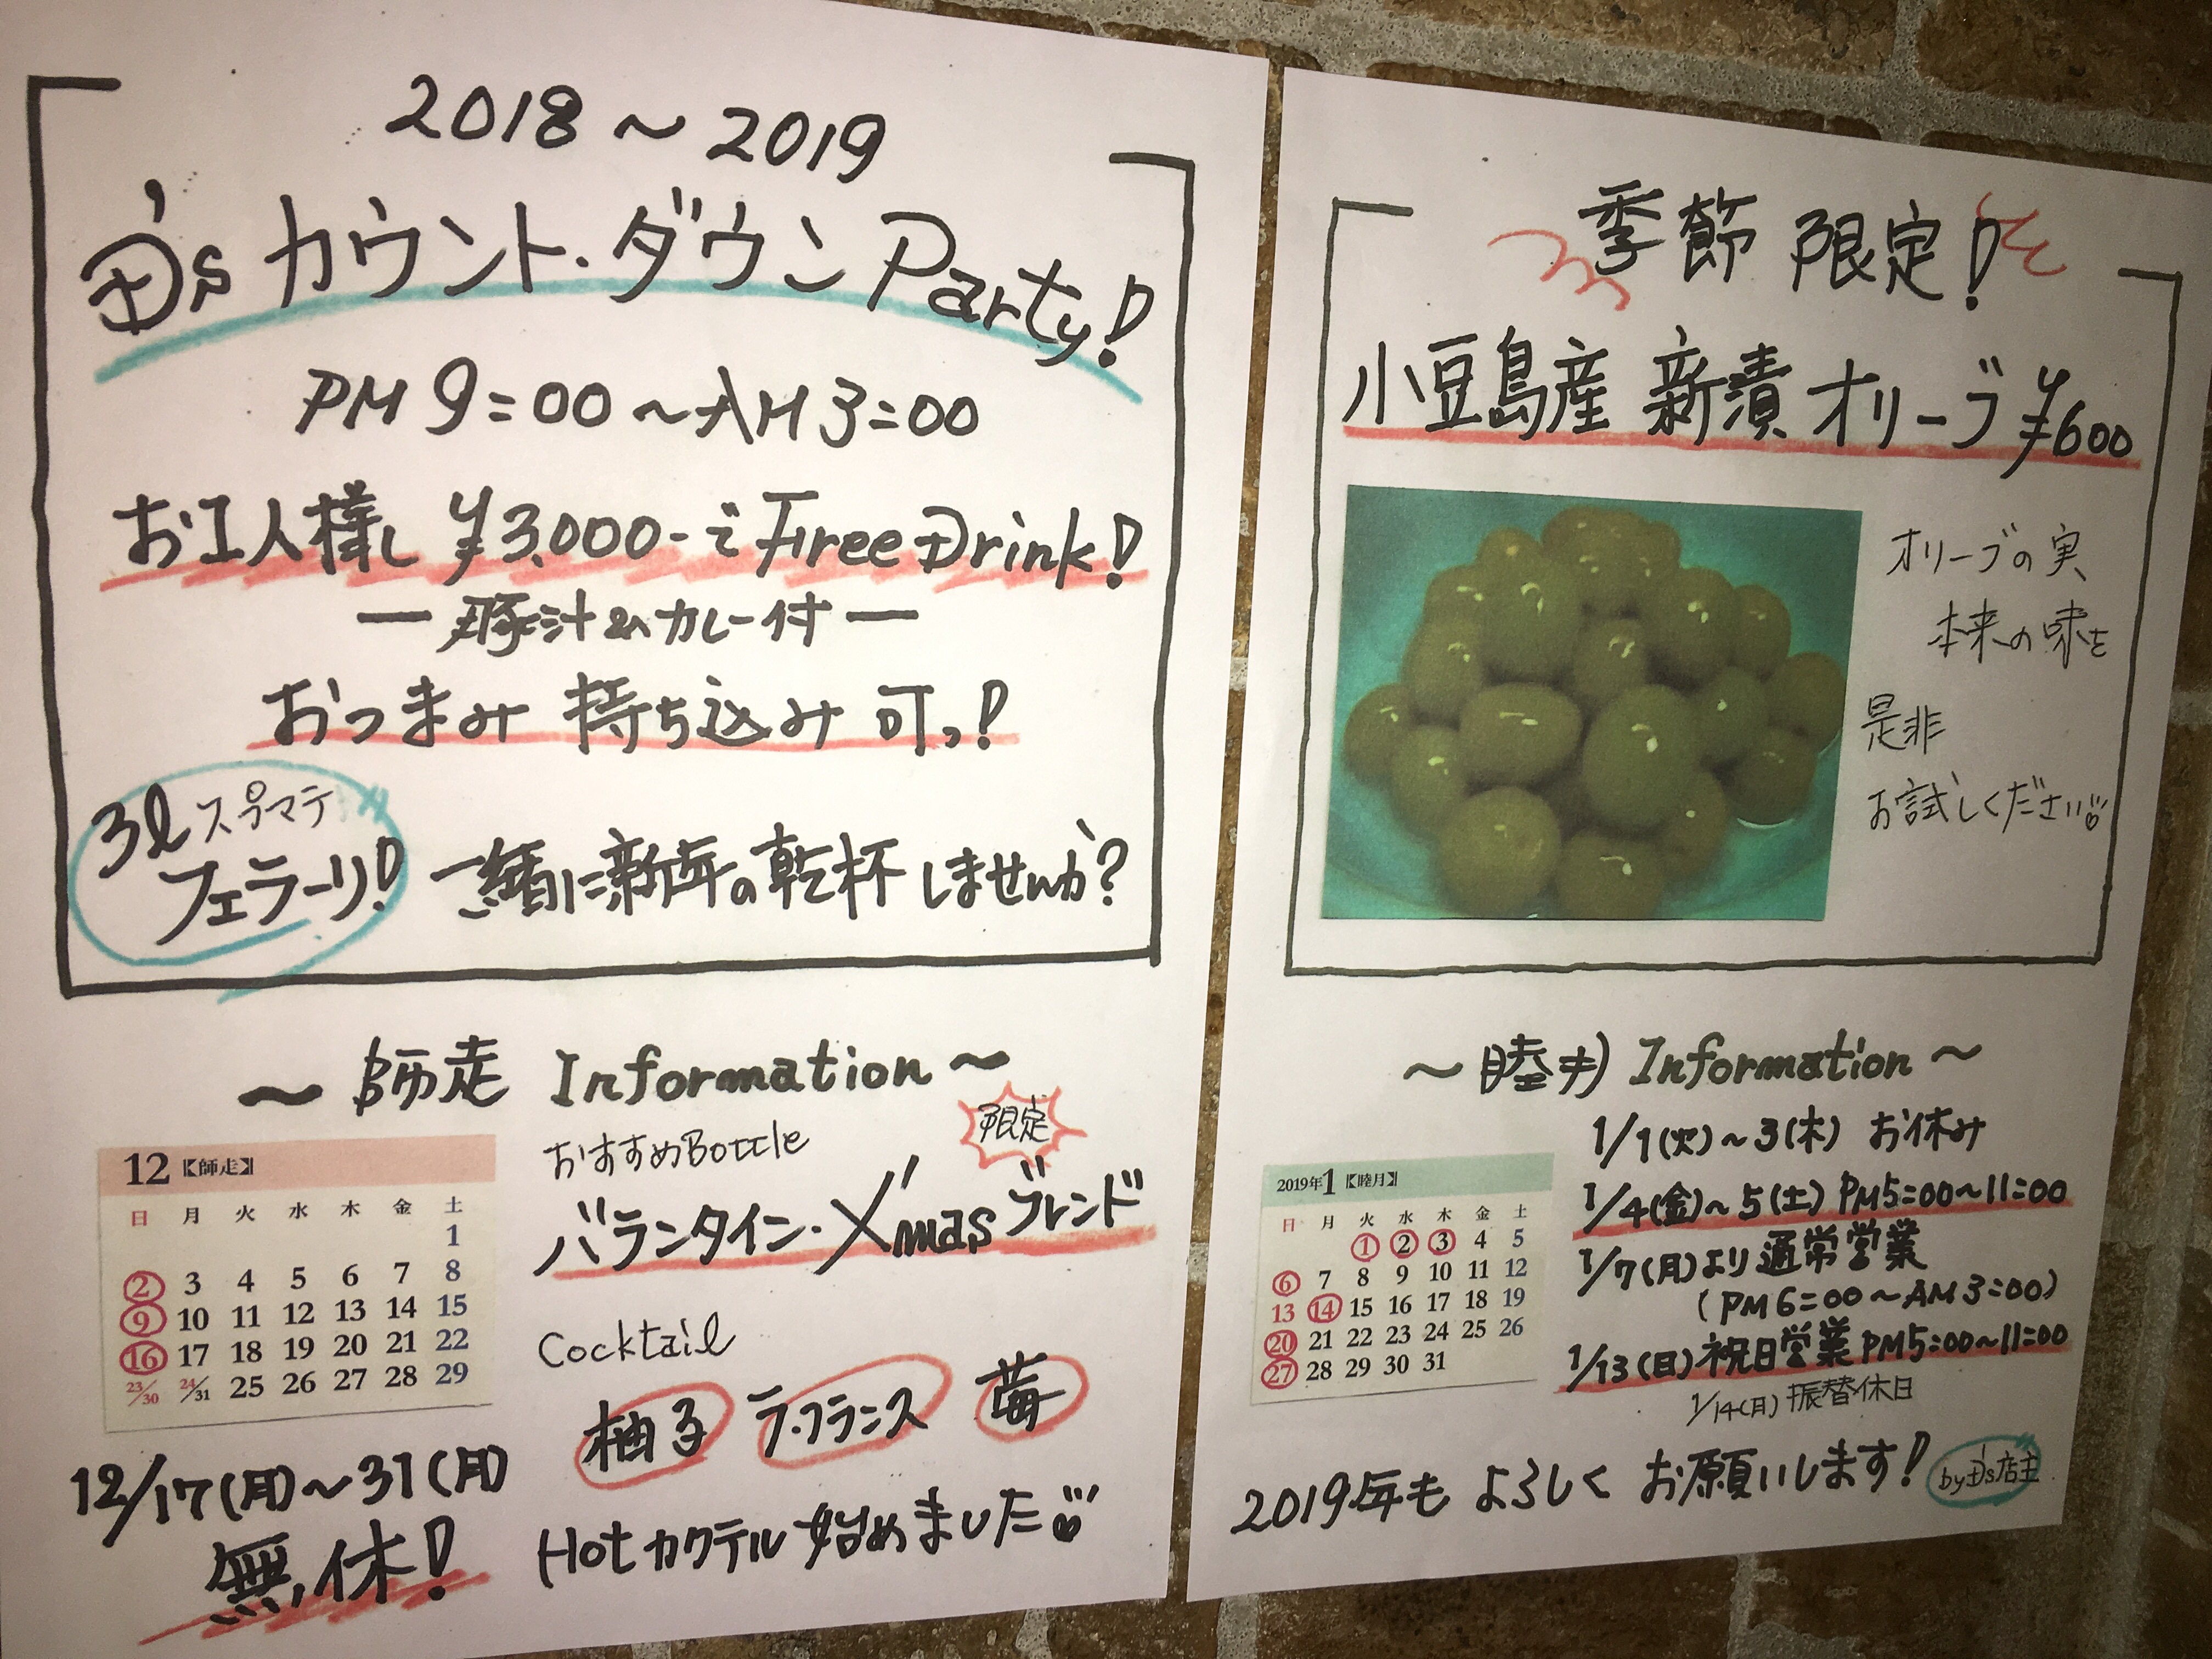 2018〜2019
D'sカウント・ダウンParty!
PM9:00〜AM3:00
お1人様 ¥3,000-でFree Drink!
ー豚汁&カレー付ー
おつまみ 持ち込み 可っ!
3ℓスプマテ
フェラーリ!
一緒に新年の乾杯しませんか?
〜師走 Information〜
12【師走】
日 月 火 水 木 金 土
1
2 3 4 5 6 7 8
9 10 11 12 13 14 15
16 17 18 19 20 21 22
23/30 24/31 25 26 27 28 29
12/17(月)〜31(月)
無休!
おすすめBottle
限定
バランタイン・X'masブレンド
Cocktail
柚子 ラ・フランス 苺
Hotカクテル始めました
季節限定!
小豆島産 新漬オリーブ ¥600
オリーブの実
本来の味を
是非
お試しください
〜睦月 Information〜
2019年1【睦月】
日 月 火 水 木 金 土
1 2 3 4 5
6 7 8 9 10 11 12
13 14 15 16 17 18 19
20 21 22 23 24 25 26
27 28 29 30 31
1/1(火)〜3(木) お休み
1/4(金)〜5(土) PM5:00〜11:00
1/7(月)より通常営業
(PM6:00〜AM3:00)
1/13(日)祝日営業PM5:00〜11:00
1/14(月)振替休日
2019年も よろしく お願いします!
by D's店主